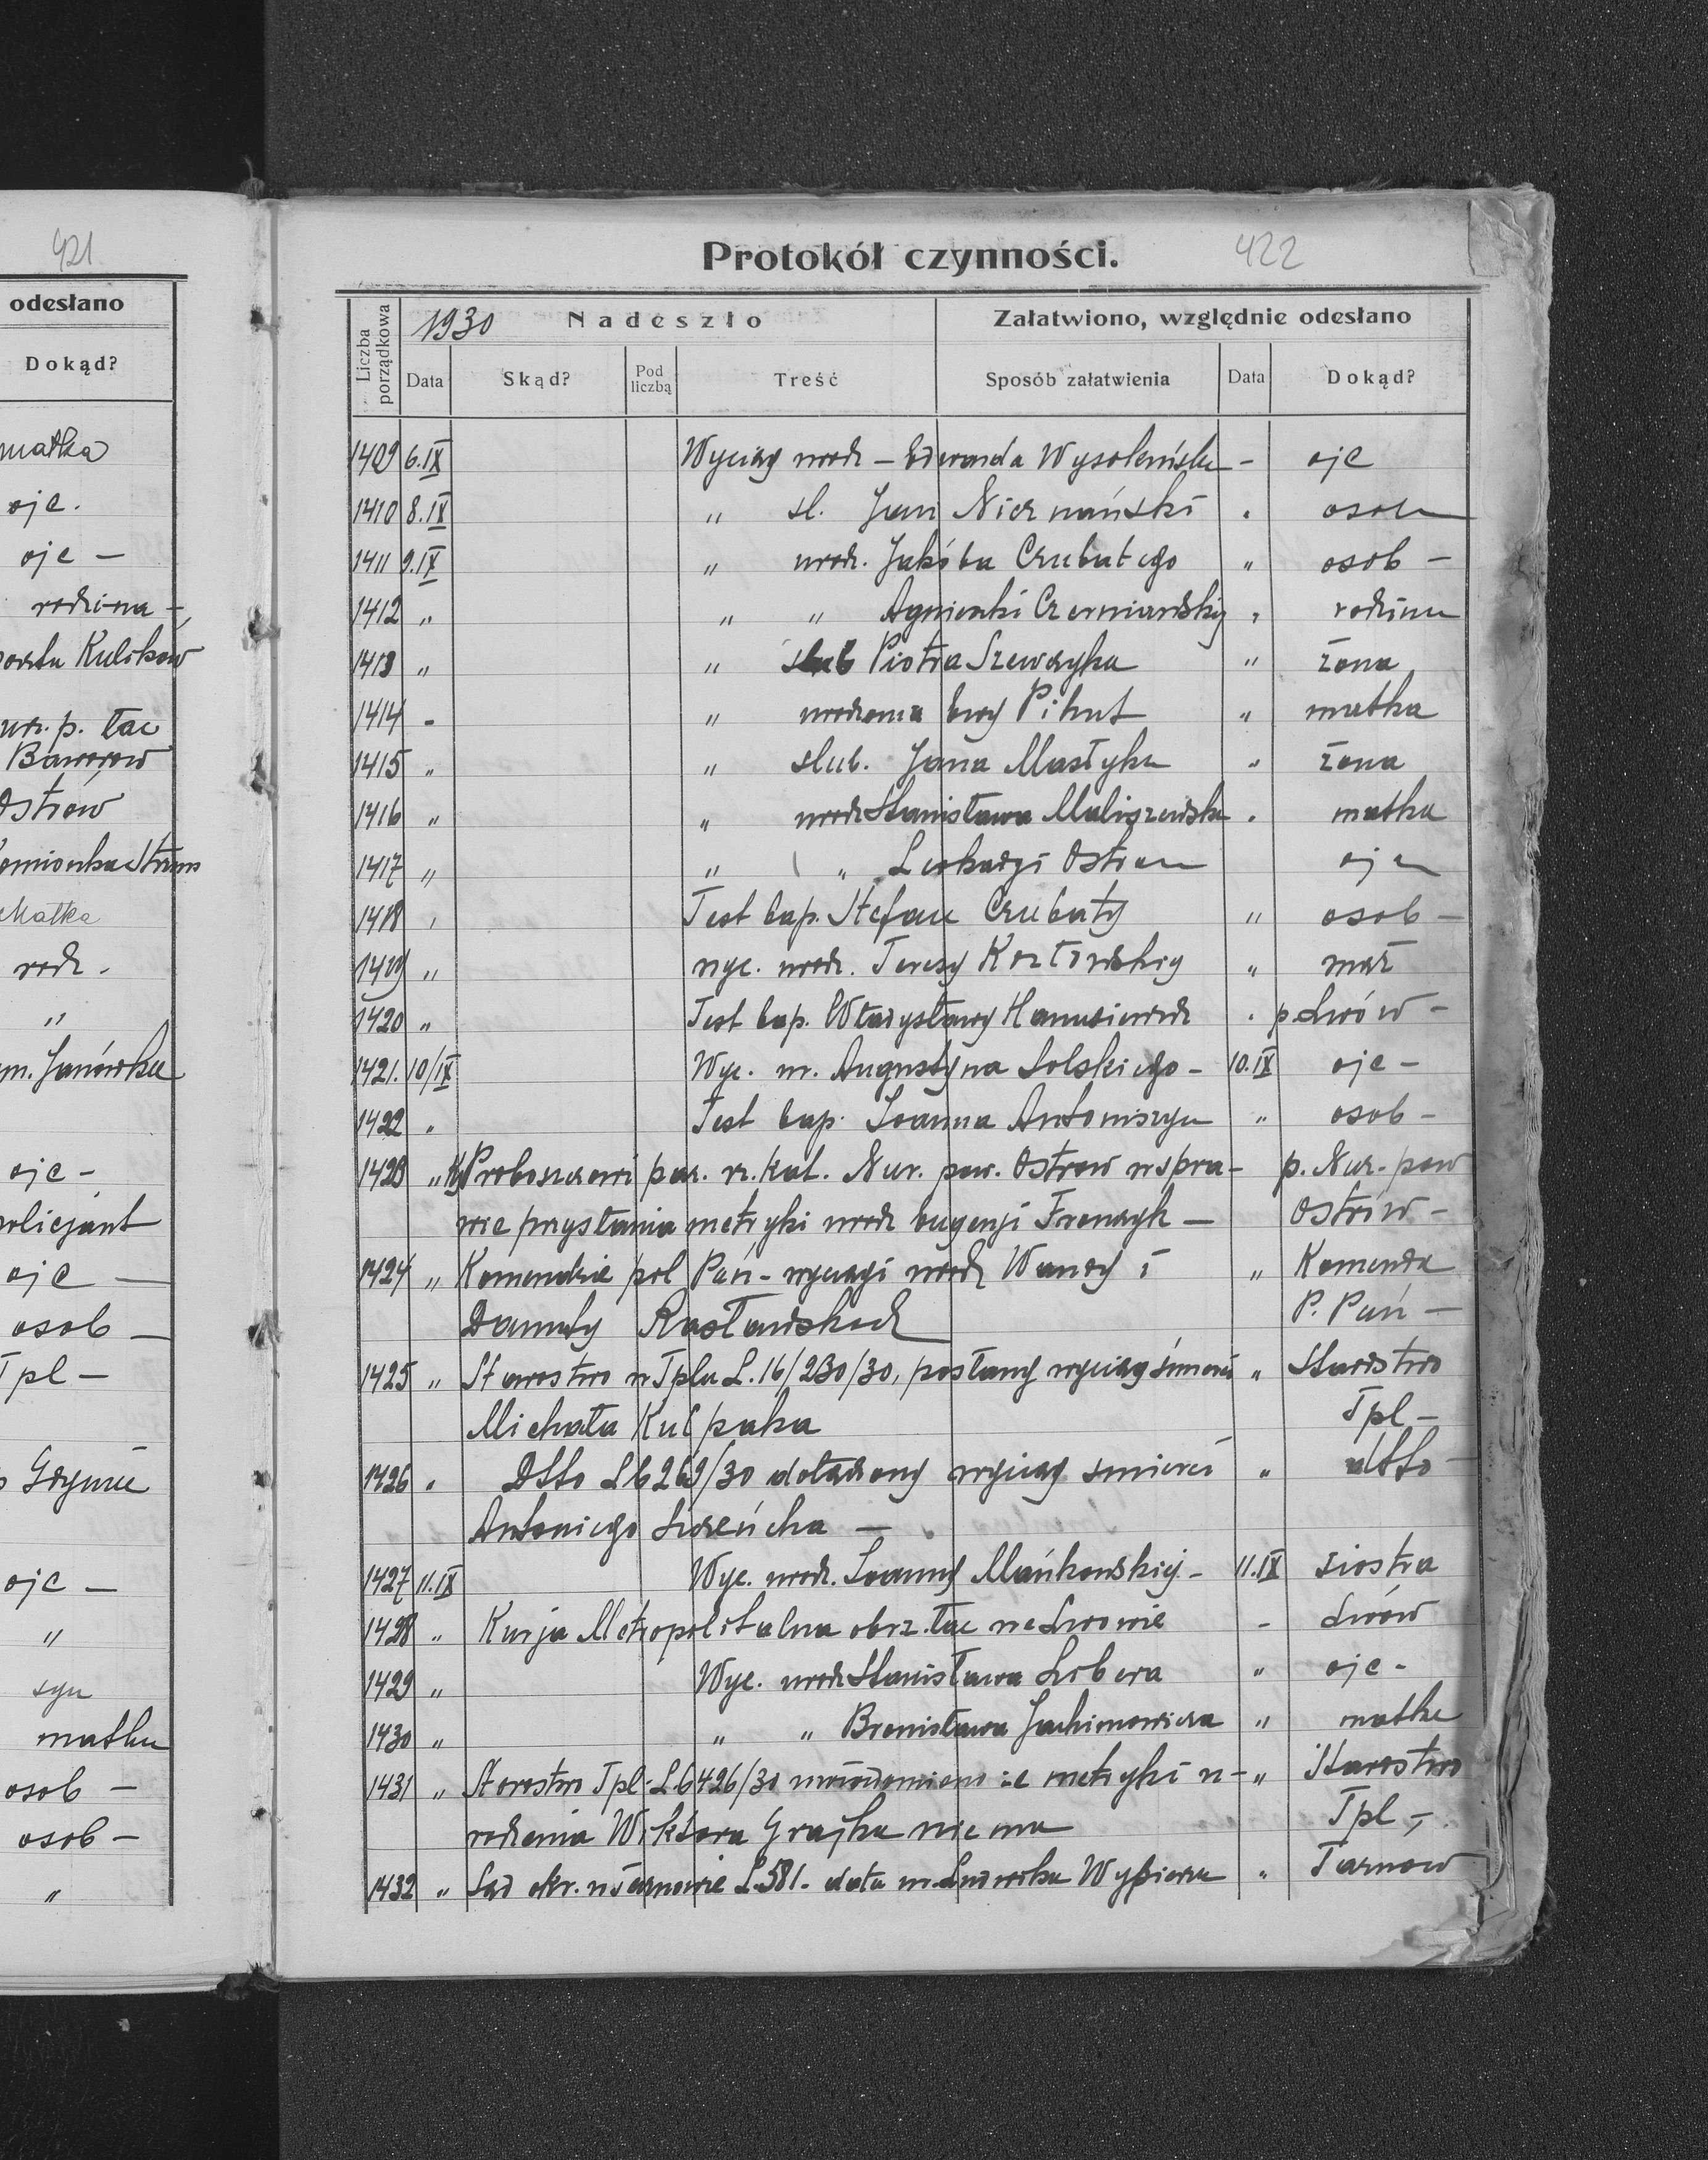 421
odesłano
Dokąd?
matka
ojc.
ojc —
rodzina —
Kulikow
p. łac
Baworow
Ostrów
Matka
rodz.
"
m. Janówka
ojc —
policjant
ojc —
osob —
Tpl —
Gdynie
ojc —
"
syn
matka
osob —
osob —
"
Protokół czynności. 422
Liczba porządkowa
1930 Nadeszło
Załatwiono, względnie odesłano
Data Skąd? Pod liczbą Treść Sposób załatwienia Data Dokąd?
1409 6.IX Wyciąg urodz — Edwarda — ojc
1410 8.IX " śl. Jan Niernański . osob
1411 9.IX " urodz. Jakóba Czubatego " osob —
1412 " " " Agnieszki " rodzina
1413 " " ślub Piotra Szewczyka " żona
1414 - " urodzenia Ewy Pikut " matka
1415 " " ślub. Jana Mastyka " żona
1416 " " urodz Stanisława Maliszewska . matka
1417 " " " Leokadji ojc
1418 " Test bap. Stefan Czubaty " osob —
1419 " wyc. urodz. Teresy Kozłowskiej " mąż
1420 " Test bap. Władysławy . p. Lwów —
1421. 10/IX Wyc. ur. Augustyna Solskiego — 10.IX ojc —
1422 " Test bap. Joanna Antoniszyn " osob —
1423 " Proboszczowi par. rz. kat. Nur. pow. Ostrow w spra- p. Nur. pow
wie przysłania metryki urodz Eugenji Frenzyk — Ostrów —
1424 " Komendzie pol Pań - wyciągi urodz Wandy i " Komenda
Danuty P. Pań —
1425 " Starostwo w Tplu L. 16/230/30, posłany wyciąg śmierci " Starostwo
Michała Kulpaka Tpl —
1426 " Dtto L 6269/30 dołączony wyciąg śmierci " dtto
Antoniego —
1427 11.IX Wyc. urodz. Joanny Mańkowskiej — 11.IX siostra
1428 " Kurja Metropolitalna obrz. łac we Lwowie - Lwów
1429 " Wyc. urodz Stanisława Sobera " ojc -
1430 " " " Bronisława Jachimowicza " matka
1431 " Starostwo Tpl - L. 6426/30 uwiadomiono że metryki u- " Starostwo
rodzenia Wiktora Grajka nie ma Tpl —
1432 " Sąd okr. w Tarnowie L. 581. data ur. Ludwika " Tarnow